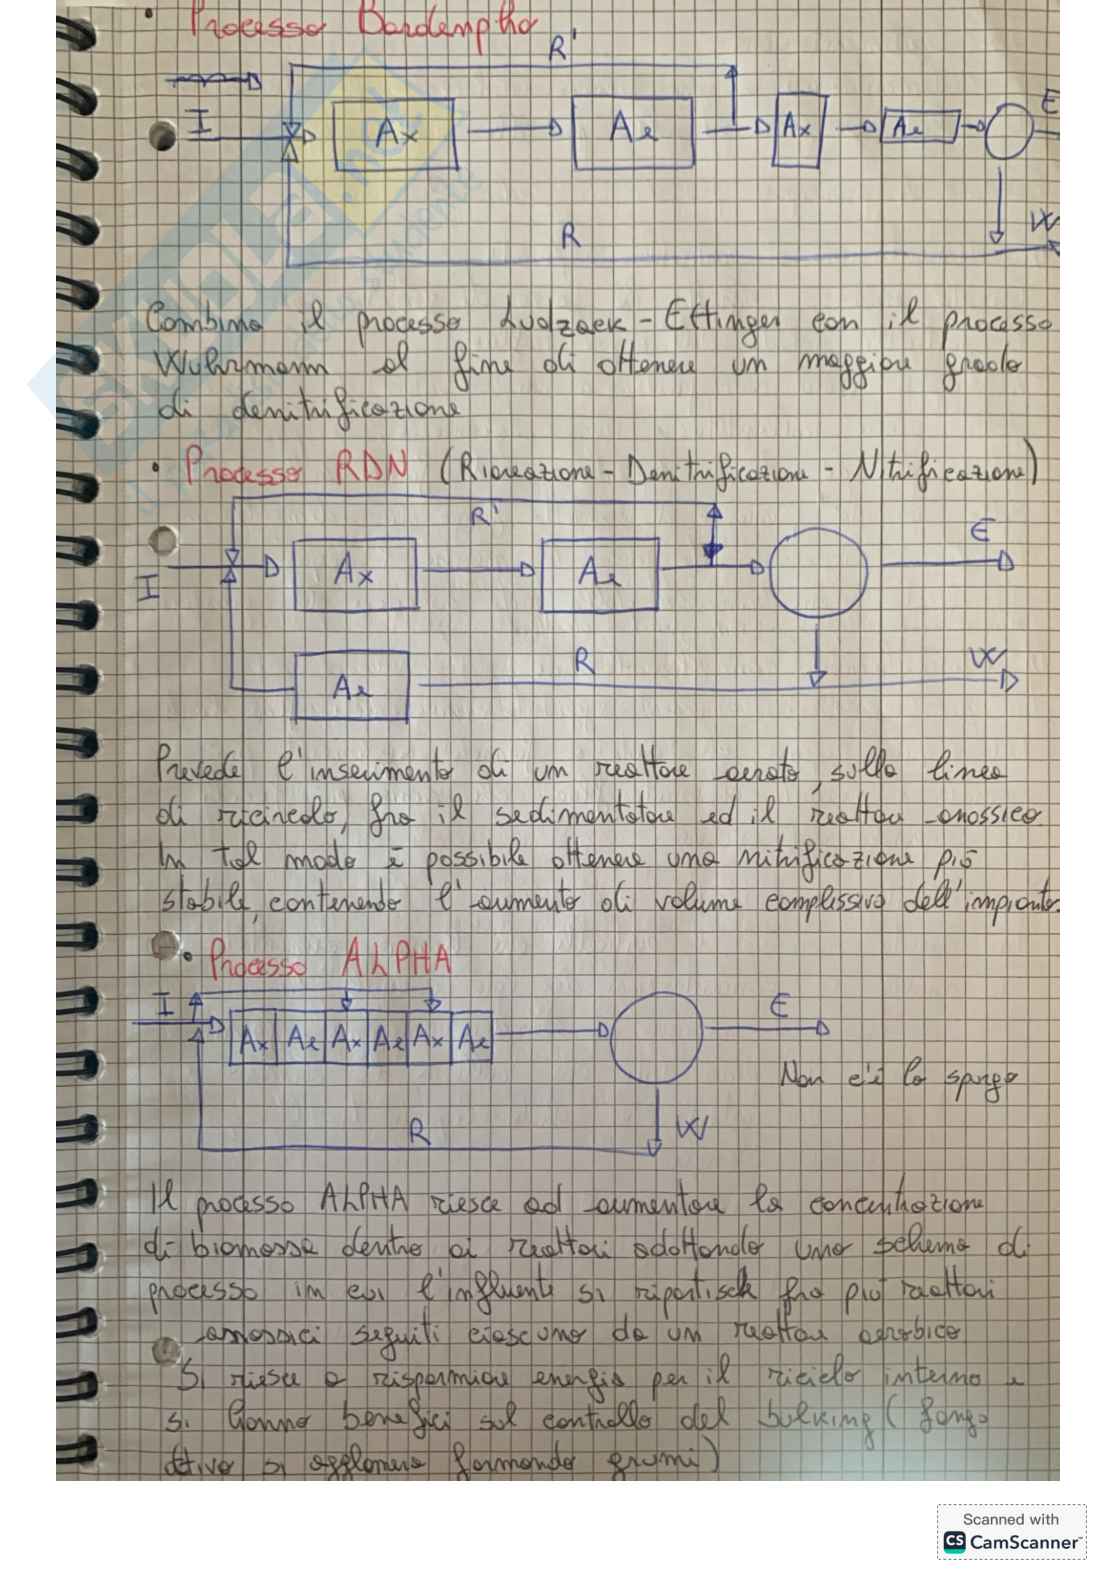 • Processo Bardempho
R'
I
Ax
Ae
Ax
Ae
E
R
W
Combina il processo Ludzaek - Ettinger con il processo
Wuhrmann al fine di ottenere un maggiore grado
di denitrificazione
• Processo RDN (Riareazione - Denitrificazione - Nitrificazione)
R'
I
Ax
Ae
E
Ae
R
W
Prevede l'inserimento di un reattore aerato, sulla linea
di ricircolo, fra il sedimentatore ed il reattore anossico
In tal modo è possibile ottenere una nitrificazione più
stabile, contenendo l'aumento di volume complessivo dell'impianto.
• Processo ALPHA
I
Ax Ae Ax Ae Ax Ae
E
Non c'è lo spurgo
R
W
Il processo ALPHA riesce ad aumentare la concentrazione
di biomassa dentro ai reattori adottando uno schema di
processo in cui l'influente si ripartisce fra più reattori
anossici seguiti ciascuno da un reattore aerobico
Si riesce a risparmiare energia per il riciclo interno e
si hanno benefici sul controllo del bulking (fango
attivo si agglomera formando grumi)
Scanned with
CS CamScanner